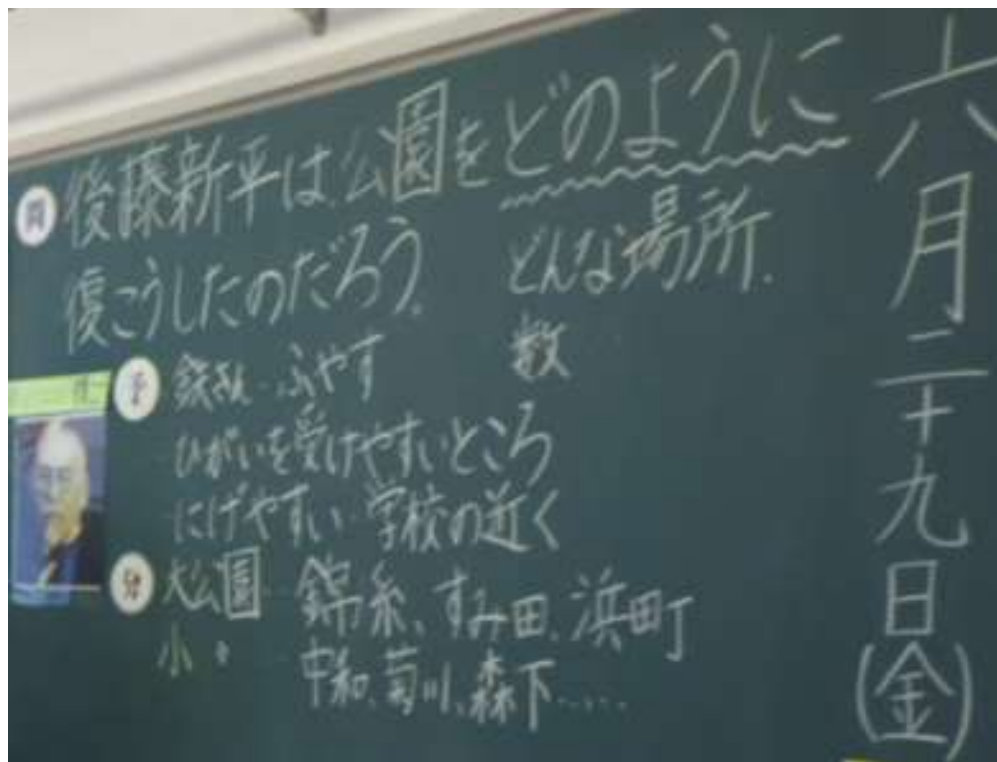 六月二十九日(金)
問 後藤新平は公園をどのように
復こうしたのだろう。
どんな場所.
数
予 たくさん ふやす
ひがいを受けやすいところ
にげやすい 学校の近く
分 大公園 錦糸、すみ田、浜町
小〃 中和、菊川、森下……